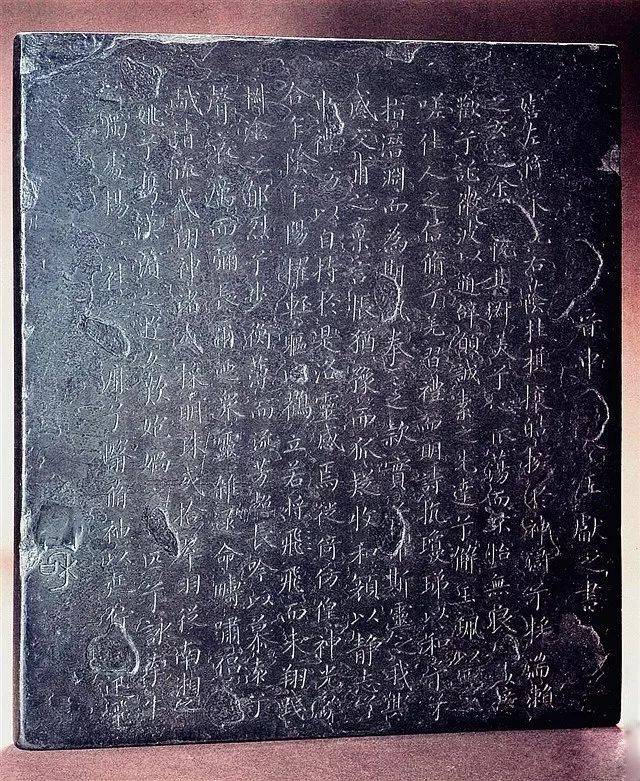 晉中 令王獻之書
嬉左倚采旄右蔭桂旗攘皓捥於神滸兮采湍瀨
之玄芝余 悅其淑美兮心振蕩而不怡無良 以接
歡兮託微波以通辭願誠素之先達兮解玉珮以要之
嗟佳人之信脩兮羌習禮而明詩抗瓊珶以和予兮
指潛淵而為期執拳拳之款實兮懼斯靈之我欺
感交甫之棄言悵猶豫而狐疑收和顏以靜志兮
申禮防以自持於是洛靈感焉徙倚仿偟神光離
合乍陰乍陽擢輕軀以鶴立若將飛飛而未翔踐
椒塗之郁烈兮步衡薄而流芳超長吟以慕遠兮
聲哀厲而彌長爾迺衆靈雜遝命疇嘯侶
戲清流或翔神渚或採明珠或拾翠羽從南湘之
姚兮攜漢濱之遊女歎 媧 匹兮詠牽牛
獨處揚 袿 靡兮翳脩袖以延佇 迅飛
永